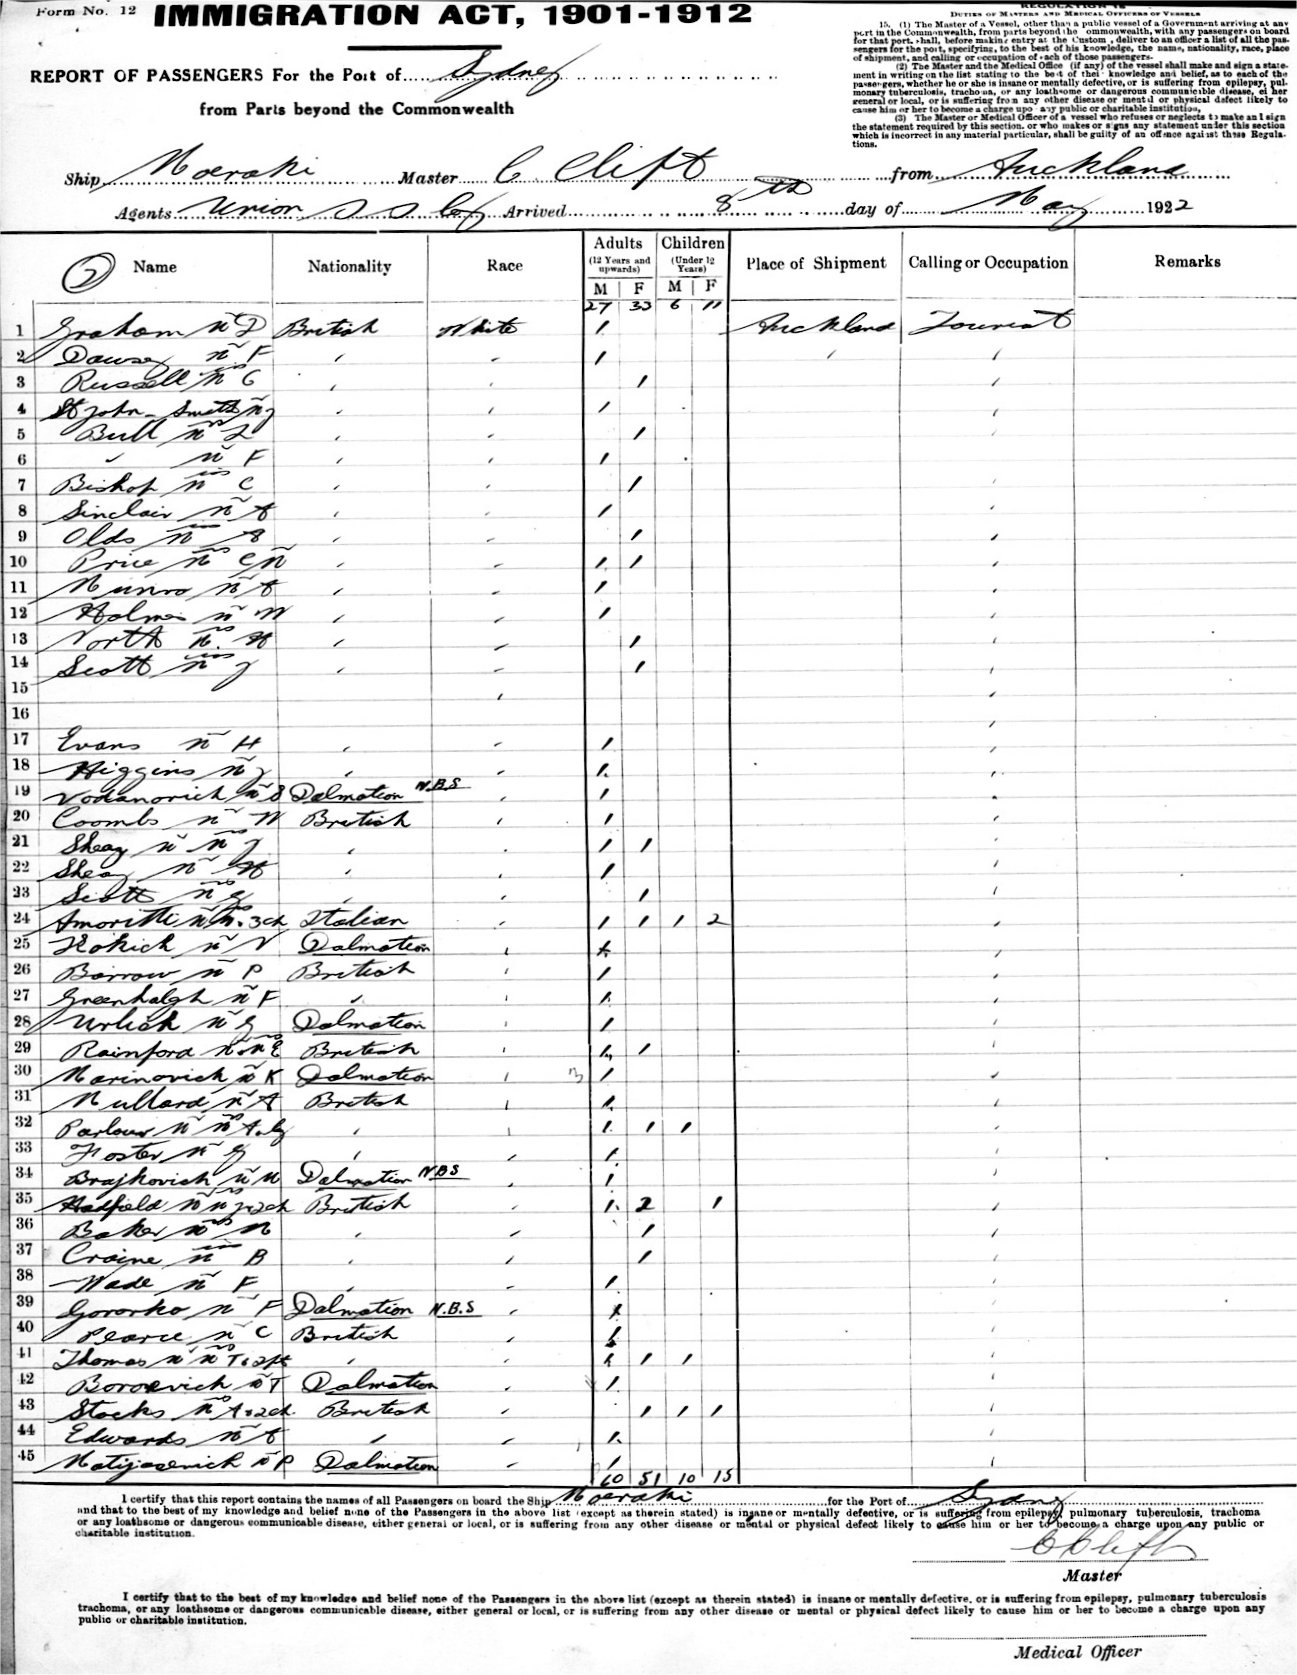 Form No. 12
IMMIGRATION ACT, 1901-1912
REPORT OF PASSENGERS For the Port of Sydney
from Parts beyond the Commonwealth
DUTIES OF MASTERS AND MEDICAL OFFICERS OF VESSELS
15. (1) The Master of a Vessel, other than a public vessel of a Government arriving at any
port in the Commonwealth, from parts beyond the ommonwealth, with any passengers on board
for that port, shall, before making entry at the Custom , deliver to an officer a list of all the pas-
sengers for the port, specifying, to the best of his knowledge, the name, nationality, race, place
of shipment, and calling or occupation of each of those passengers.
(2) The Master and the Medical Office (if any) of the vessel shall make and sign a state-
ment in writing on the list stating to the best of their knowledge and belief, as to each of the
passengers, whether he or she is insane or mentally defective, or is suffering from epilepsy, pul-
monary tuberculosis, trachoma, or any loathsome or dangerous communicible disease, either
general or local, or is suffering from any other disease or mental or physical defect likely to
cause him or her to become a charge upo any public or charitable institution.
(3) The Master or Medical Officer of a vessel who refuses or neglects to make and sign
the statement required by this section, or who makes or signs any statement under this section
which is incorrect in any material particular, shall be guilty of an offence against these Regula-
tions.
Ship Moeraki Master C Clift from Auckland
Agents Union S S Coy Arrived 8th day of May 1922
2 Name Nationality Race Adults (12 Years and upwards) M F Children (Under 12 Years) M F Place of Shipment Calling or Occupation Remarks
27 33 6 11
1 Graham Mr D British White 1 Auckland Tourist
2 Dawsey Mr F 1
3 Russell Mrs C 1
4 St John-Smith Mr J 1
5 Bull Mrs L 1
6 " Mr F 1
7 Bishop Miss C 1
8 Sinclair Mr A 1
9 Olds Miss A 1
10 Price Mrs C Mr 1 1
11 Munro Mr A 1
12 Holmes Mr W 1
13 North Mrs H 1
14 Scott Miss J 1
15
16
17 Evans Mr H 1
18 Higgins Mr J 1
19 Vodanovich Mr S Dalmation N.B.S 1
20 Coombs Mr W British 1
21 Sheay Mr Mrs J 1 1
22 Sheay Mr H 1
23 Scott Mrs G 1
24 Amoritti Mr Mrs 3 ch Italian 1 1 1 2
25 Kokich Mr V Dalmation 1
26 Barrow Mr P British 1
27 Greenhalgh Mr F 1
28 Urlich Mr G Dalmation 1
29 Rainford Mr Mrs E British 1 1
30 Marinovich Mr K Dalmation 1
31 Mullard Mr A British 1
32 Parlour Mr Mrs A.G 1 1 1
33 Foster Mr G 1
34 Brajkovich Mr M Dalmation N.B.S 1
35 Hadfield Mr Mrs J + 2 ch British 1 2 1
36 Baker Mrs M 1
37 Craine Miss B 1
38 Wade Mr F 1
39 Gororko Mr F Dalmation N.B.S 1
40 Pearce Mr C British 1
41 Thomas Mr Mrs T 1 1 1
42 Boroevich Mr T Dalmation 1
43 Stocks Mrs A + 2 ch British 1 1 1
44 Edwards Mr A 1
45 Matijasevich Mr P Dalmation 1
60 51 10 15
I certify that this report contains the names of all Passengers on board the Ship Moeraki for the Port of Sydney
and that to the best of my knowledge and belief none of the Passengers in the above list (except as therein stated) is insane or mentally defective, or is suffering from epilepsy, pulmonary tuberculosis, trachoma
or any loathsome or dangerous communicable disease, either general or local, or is suffering from any other disease or mental or physical defect likely to cause him or her to become a charge upon any public or
charitable institution.
C Clift
Master
I certify that to the best of my knowledge and belief none of the Passengers in the above list (except as therein stated) is insane or mentally defective, or is suffering from epilepsy, pulmonary tuberculosis
trachoma, or any loathsome or dangerous communicable disease, either general or local, or is suffering from any other disease or mental or physical defect likely to cause him or her to become a charge upon any
public or charitable institution.
Medical Officer